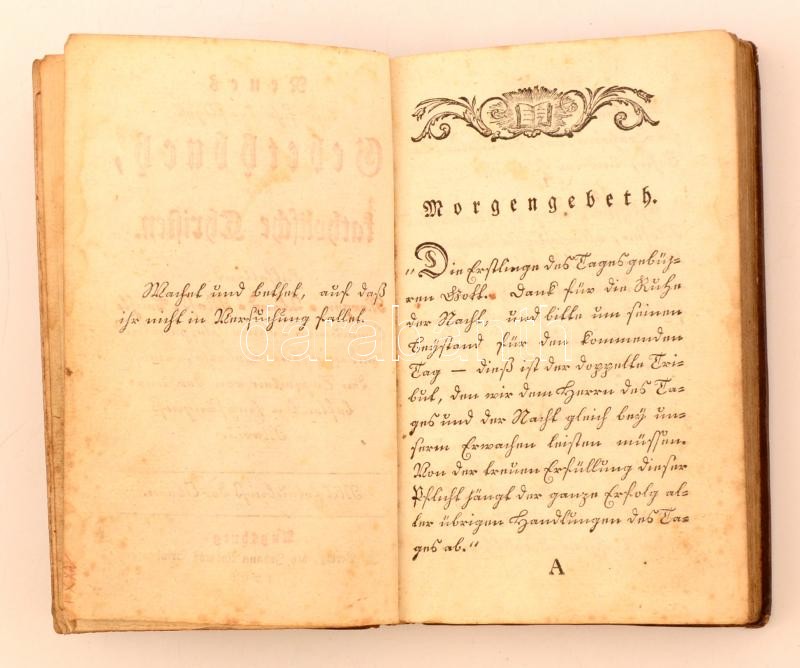 Wachet und bethet, auf daß
ihr nicht in Versuchung fallet.
Morgengebeth.
„Die Erstlinge des Tages gebüh-
ren Gott. Dank für die Ruhe
der Nacht, und bitte um seinen
Beystand für den kommenden
Tag — dieß ist der doppelte Tri-
but, den wir dem Herrn des Ta-
ges und der Nacht gleich bey un-
serm Erwachen leisten müssen.
Von der treuen Erfüllung dieser
Pflicht hängt der ganze Erfolg al-
ler übrigen Handlungen des Ta-
ges ab.“
A
darabanth